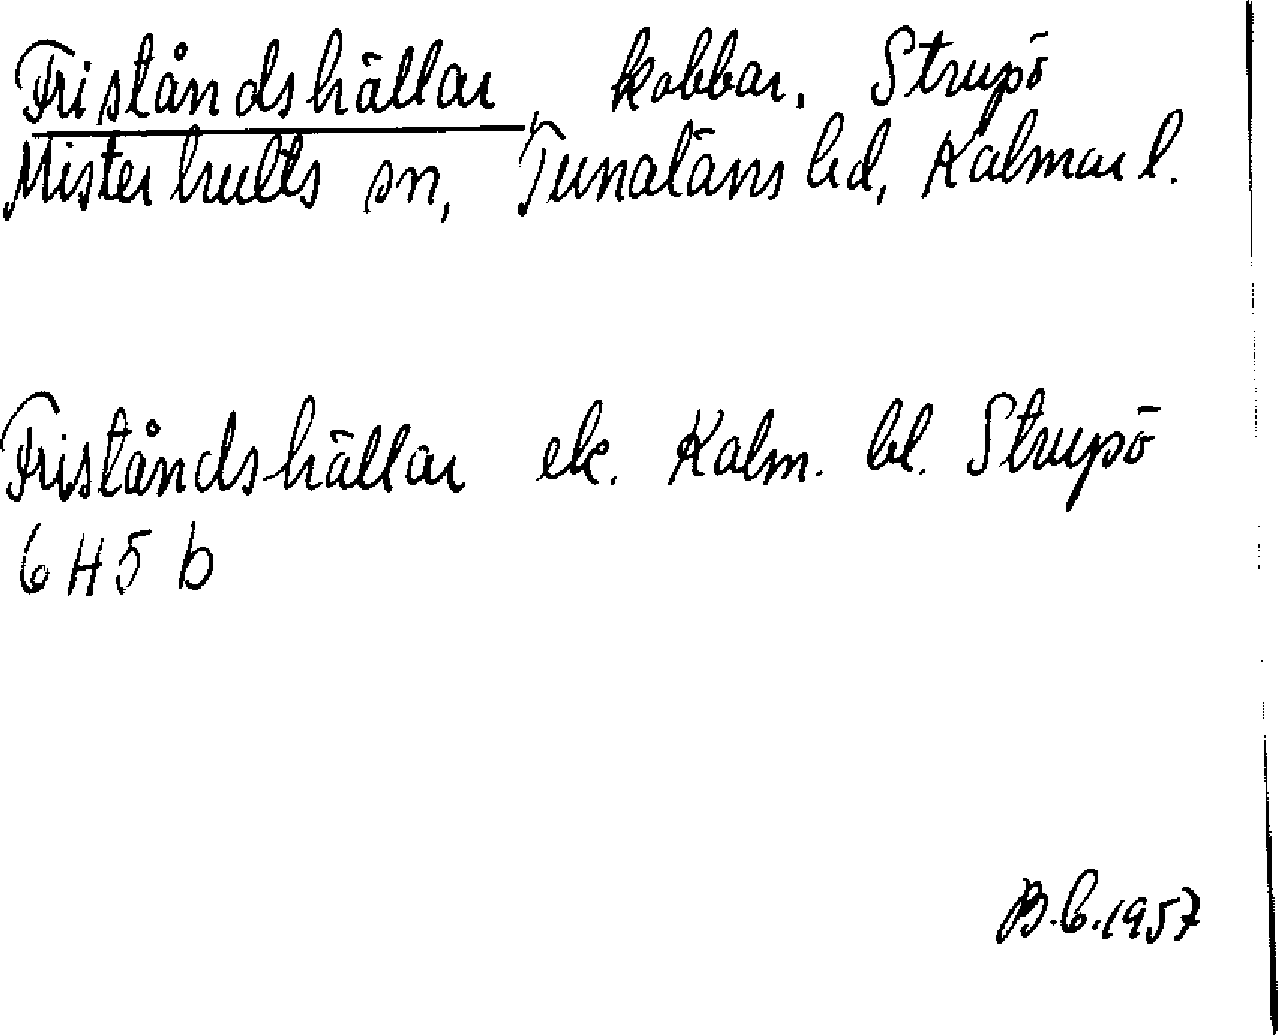 Friståndshällar, kobbar, Strupö
Misterhults sn, Tunaläns hd, Kalmar l.
Friståndshällar ek. Kalm. bl. Strupö
6 H 5 b
B.G. 1957